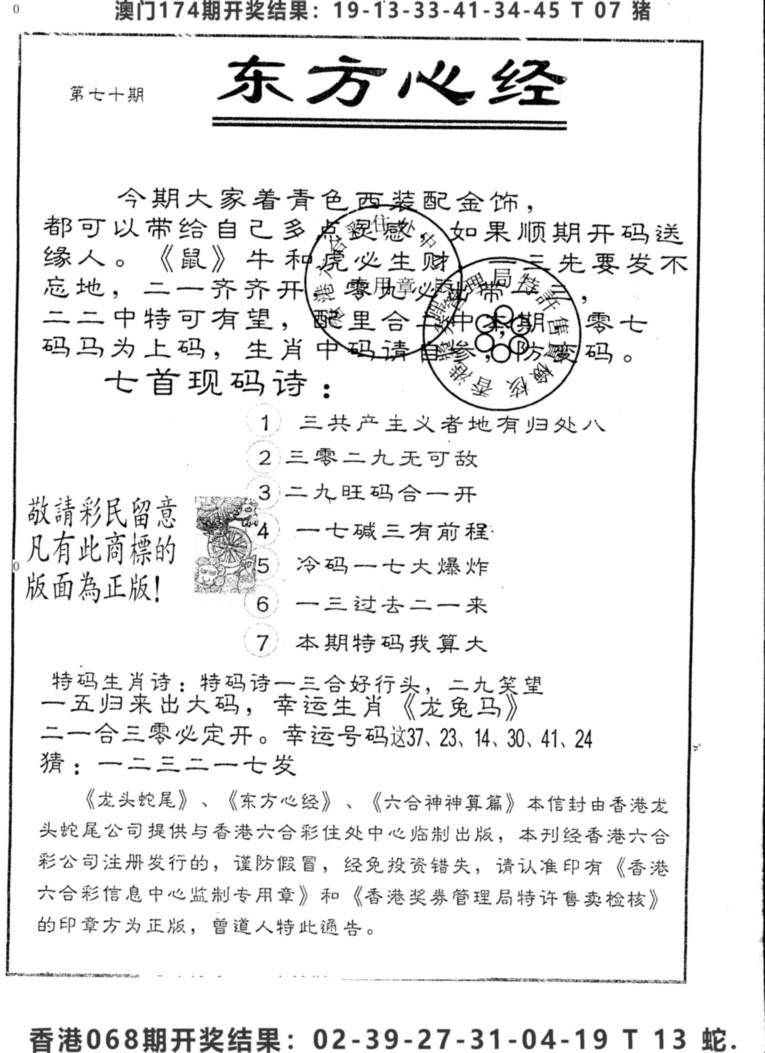 澳门174期开奖结果：19-13-33-41-34-45 T 07 猪
第七十期
东方心经
今期大家着青色西装配金饰，
都可以带给自己多点灵感，如果顺期开码送
缘人。《鼠》牛和虎必生财 三先要发不
忘地，二一齐齐开，零九必出带一，
二二中特可有望，配里合二中本期，零七
码马为上码，生肖中码请自参，防变码。
七首现码诗：
1 三共产主义者地有归处八
2 三零二九无可敌
3 二九旺码合一开
4 一七碱三有前程
5 冷码一七大爆炸
6 一三过去二一来
7 本期特码我算大
敬請彩民留意
凡有此商標的
版面為正版！
特码生肖诗：特码诗一三合好行头，二九笑望
一五归来出大码，幸运生肖《龙兔马》
二一合三零必定开。幸运号码这37、23、14、30、41、24
猜：一二三二一七发
《龙头蛇尾》、《东方心经》、《六合神神算篇》本信封由香港龙
头蛇尾公司提供与香港六合彩住处中心临制出版，本刊经香港六合
彩公司注册发行的，谨防假冒，经免投资错失，请认准印有《香港
六合彩信息中心监制专用章》和《香港奖券管理局特许售卖检核》
的印章方为正版，曾道人特此通告。
香港068期开奖结果：02-39-27-31-04-19 T 13 蛇.